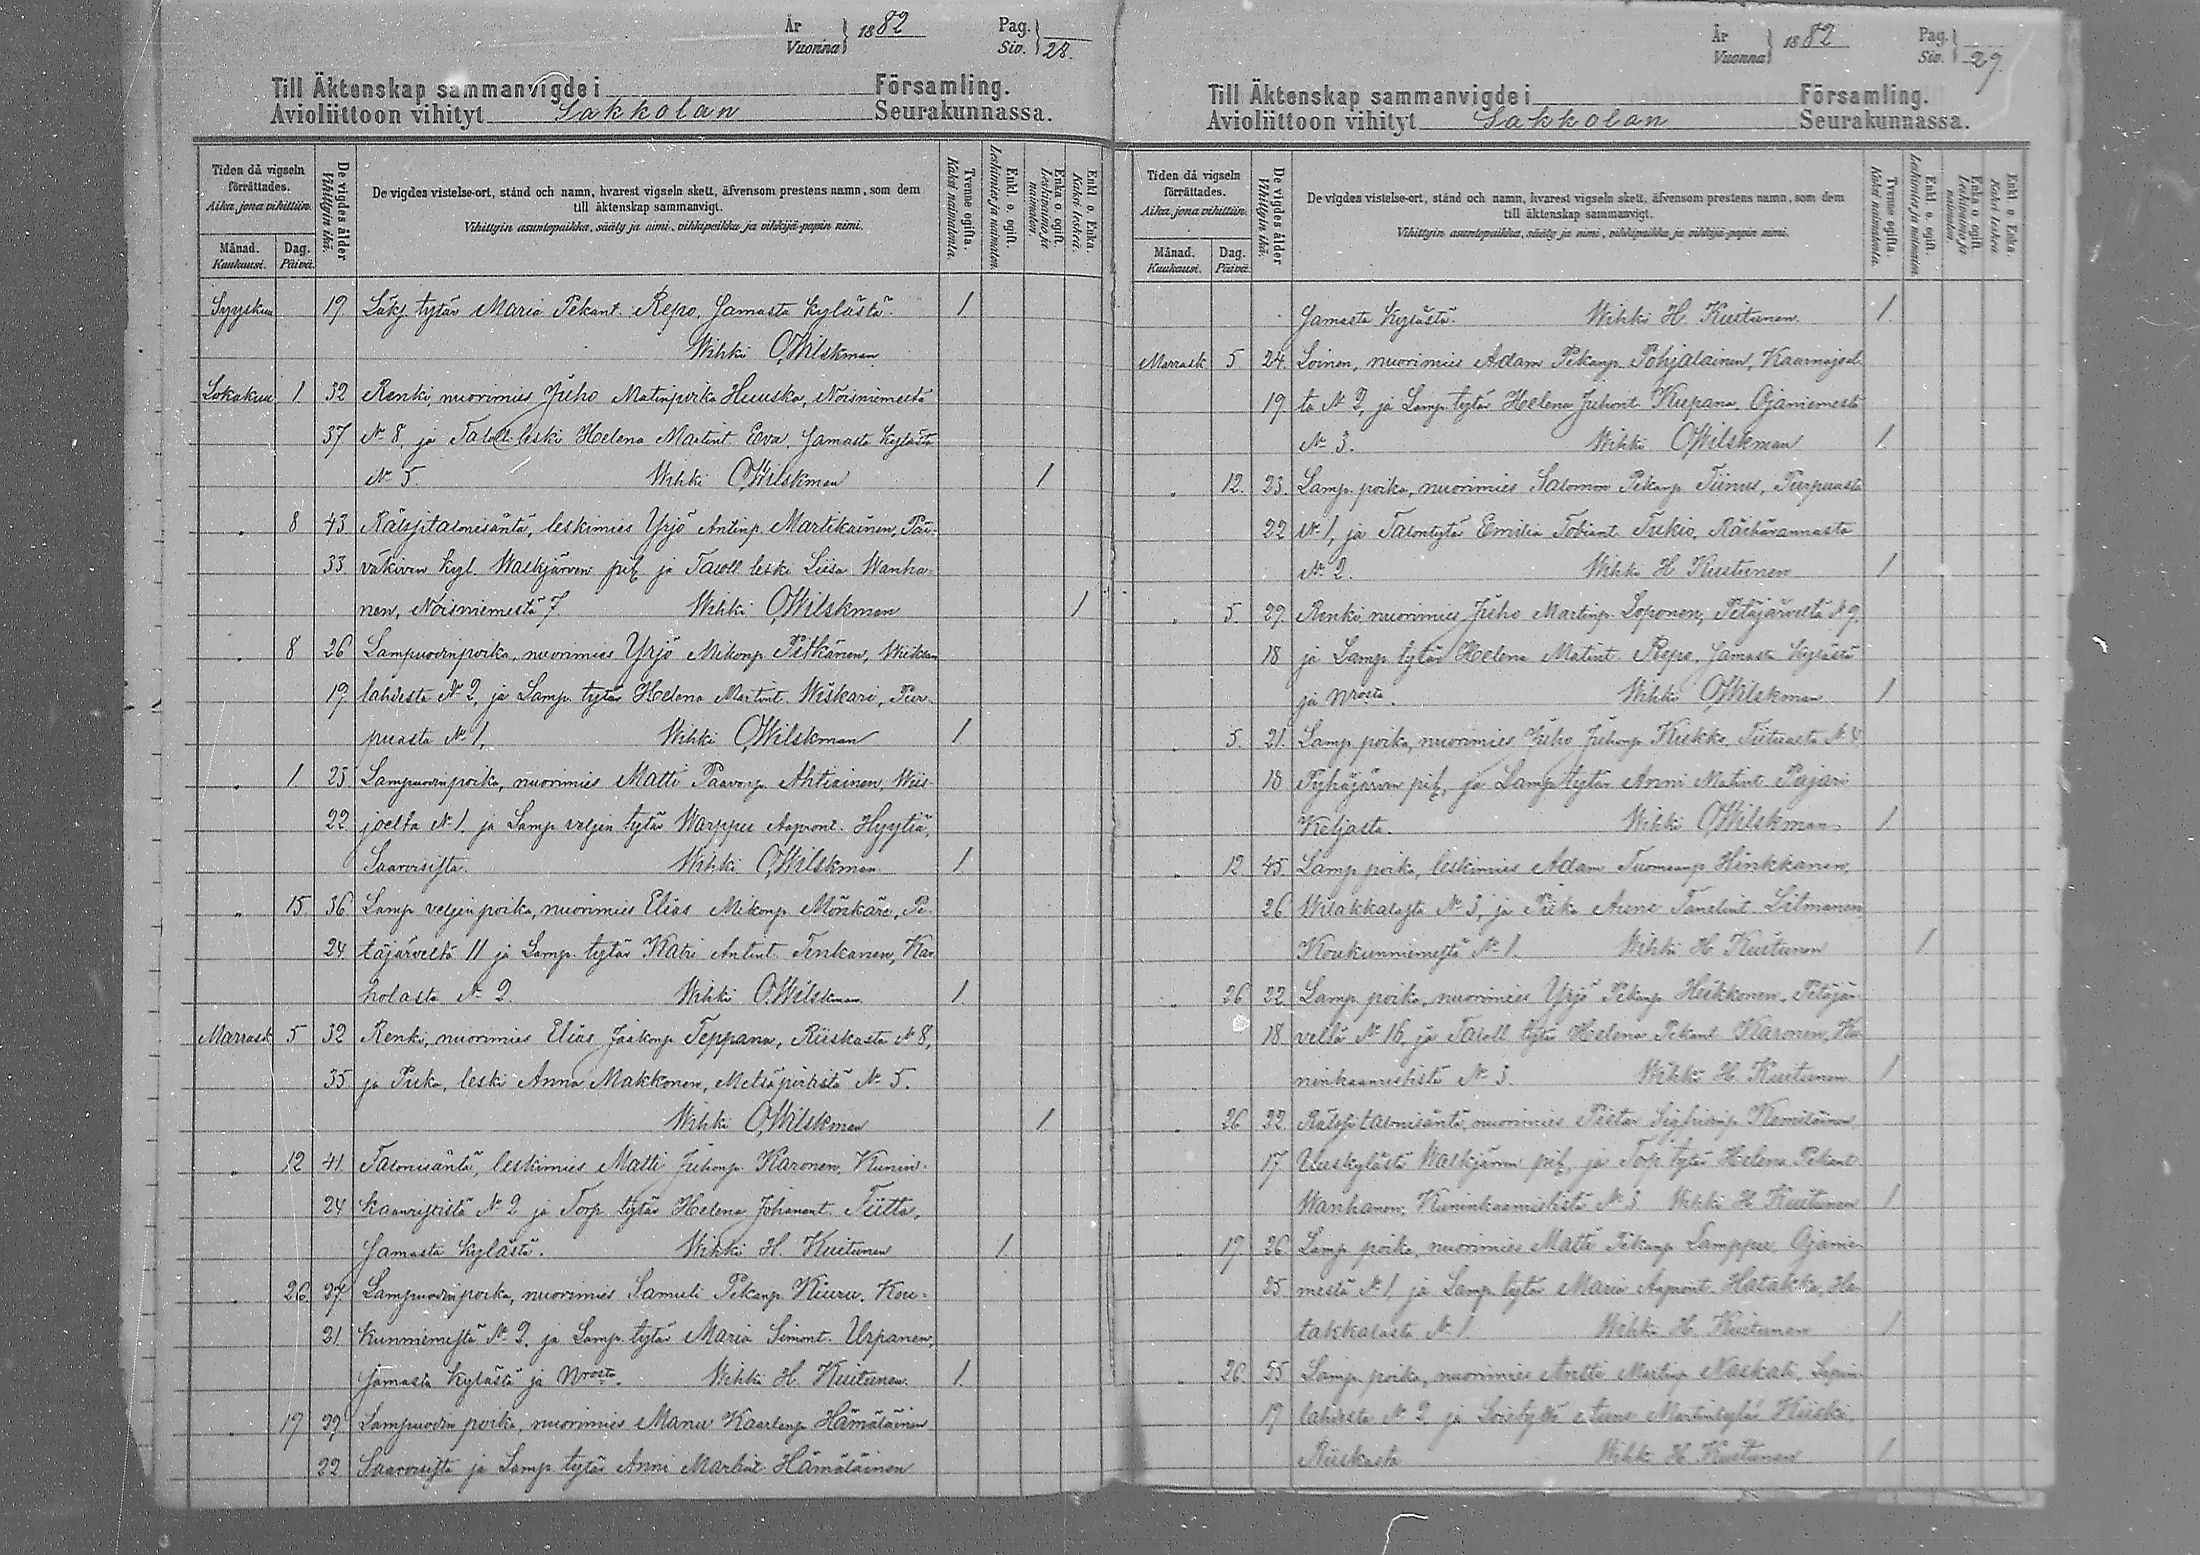 År
Vuonna } 1882 Pag.
Siv. } 28.
Till Äktenskap sammanvigde i Församling.
Avioliittoon vihityt Sakkolan Seurakunnassa.
Tiden då vigseln förrättades.
Aika, jona vihittiin.
Månad. Kuukausi.
Dag. Päivä.
De vigdes ålder
Vihittyin ikä.
De vigdes vistelse-ort, stånd och namn, hvarest vigseln skett, äfvensom prestens namn, som dem
till äktenskap sammanvigt.
Vihittyin asuntopaikka, sääty ja nimi, vihkipaikka ja vihkijä-papin nimi.
Tvenne ogifta.
Kaksi naimatonta.
Enkl. o. ogift.
Leskimies ja naimaton.
Enka o. ogift.
Leskivaimo ja naimaton.
Enkl o. Enka.
Kaksi leskeä.
Syyskuu 19 Lükj tytär Maria Pekant. Repo, samasta kylästä. 1
Wihki O,Wilskman
Lokakuu 1. 32 Renki, nuorimies Juho Matinpoika Huuska, Noisniemestä
37 No 8, ja Taloll. leski Helena Martint. Eva, samasta kylästä
No 5. Wihki O,Wilskman 1
" 8 43 Rälssitalonisäntä, leskimies Yrjö Antinp. Martikainen, Pär-
33. väkiven kyl. Walkjärven pit. ja Taloll leski Liisa Wanha-
nen, Noisniemestä 7 Wihki O,Wilskman 1
" 8 26 Lampuodinpoika, nuorimies Yrjö Mikonp. Pitkänen,
19. lahdesta No 2, ja Lamp. tytär Helena Martint. Wiskari, Pur-
puasta No 1, Wihki O,Wilskman 1
" 1. 23 Lampuodinpoika, nuorimies Matti Paavonp. Ahtiainen, Wiis-
22. joelta No 1. ja Lamp veljen tytär Warppu Aapront. Hyytiä,
Saaroisista. Wihki O,Wilskman 1
" 15. 36. Lamp veljen poika, nuorimies Elias Mikonp. Mönkäre, Pe-
24. täjärveltä 11 ja Lamp. tytär Katri Antint. Tenkanen, Kar-
holasta No 2. Wihki O.Wilskman. 1.
Marrask. 5 32 Renki, nuorimies Elias Jaakonp. Teppana, Riiskasta No 8,
35 ja Piika, leski Anna Makkonen, Metsäpirtistä No 5.
Wihki O,Wilskman 1.
" 12 41. Talonisäntä, leskimies Matti Juhonp. Karonen, Kunin-
24 kaanrististä No 2 ja Torp. tytär Helena Johanent. Tiitta,
samasta kylästä. Wihki H. Kuitunen 1.
" 26. 27 Lampuodinpoika, nuorimies Samuli Pekanp. Kiuru, Kou-
21. kunniemestä No 2, ja Lamp. tytär Maria Simont. Urpanen,
samasta kylästä ja Nrosta. Wihki H. Kuitunen. 1.
" 19 29 Lampuodin poika, nuorimies Manu Kaarlenp. Hämäläinen
22 Saaroisista ja Lamp. tytär Anni Martint Hämäläinen
År
Vuonna } 1882 Pag.
Siv. } 29.
Till Äktenskap sammanvigde i Församling.
Avioliittoon vihityt Sakkolan Seurakunnassa.
Tiden då vigseln förrättades.
Aika, jona vihittiin.
Månad. Kuukausi.
Dag. Päivä.
De vigdes ålder
Vihittyin ikä.
De vigdes vistelse-ort, stånd och namn, hvarest vigseln skett, äfvensom prestens namn, som dem
till äktenskap sammanvigt.
Vihittyin asuntopaikka, sääty ja nimi, vihkipaikka ja vihkijä-papin nimi.
Tvenne ogifta.
Kaksi naimatonta.
Enkl. o. ogift.
Leskimies ja naimaton.
Enka o. ogift.
Leskivaimo ja naimaton.
Enkl o. Enka.
Kaksi leskeä.
samasta kylästä. Wihki H. Kuitunen. 1.
Marrask 5 24. Loinen, nuorimies Adam Pekanp. Pohjalainen, Kaarnajoel-
19. ta No 2, ja Lamp tytär Helena Juhont. Kupana, Ojaniemestä
No 3. Wihki O,Wilskman 1.
" 12. 23. Lamp. poika, nuorimies Salomon Pekanp Tiinus, Purpuasta
22 No 1, ja Talontytär Emilia Tobiant. Tukio, Räihärannasta
No 2. Wihki H Kuitunen 1
" 5. 29. Renki, nuorimies Juho Martinp. Loponen, Petäjärveltä No 9,
18 ja Lamp tytär Helena Matint. Repo, samasta kylästä
ja Nrosta. Wihki O,Wilskman 1
" 5. 21. Lamp. poika, nuorimies Juho Juhonp. Kiekko, Tiituasta No 4
18 Pyhäjärven pit, ja Lamp. tytär Anni Matint Pajari
Keljasta. Wihki O,Wilskman 1.
" 12 45. Lamp. poika, leskimies Adam Tuomaanp. Hinkkanen,
26 Wilakkalasta No 3, ja Piika Anne Tanelint. Litmanen
Koukunniemestä No 1. Wihki H Kuitunen 1.
" 26 22. Lamp. poika, nuorimies Yrjö Pekanp Heikkonen, Petäjär-
18 veltä No 16, ja Taloll. tytär Helena Pekant Karonen, Ku-
ninkaanrististä No 3. Wihki H. Kuitunen 1
" 26 32. Rälssitalonisäntä, nuorimies Pietar Sigfridinp
17 Uuskylästä Walkjärven pit, ja Torp. tytär Helena Pekant.
Wanhanen, Kuninkaanrististä No 3. Wihki H Kuitunen 1
" 19 26 Lamp poika, nuorimies Matti Pekanp Lamppu, Ojanie-
25 mestä No 1. ja Lamp tytär Maria Aapront. Hatakka, Ha-
takkalasta No 1. Wihki H. Kuitunen 1
" 26. 35. Lamp. poika, nuorimies Antti Martinp Naskali, Lapin-
19 lahdesta No 2, ja Loistyttö Anne Martintytär Kiiski,
Riiskasta Wihki H. Kuitunen 1.